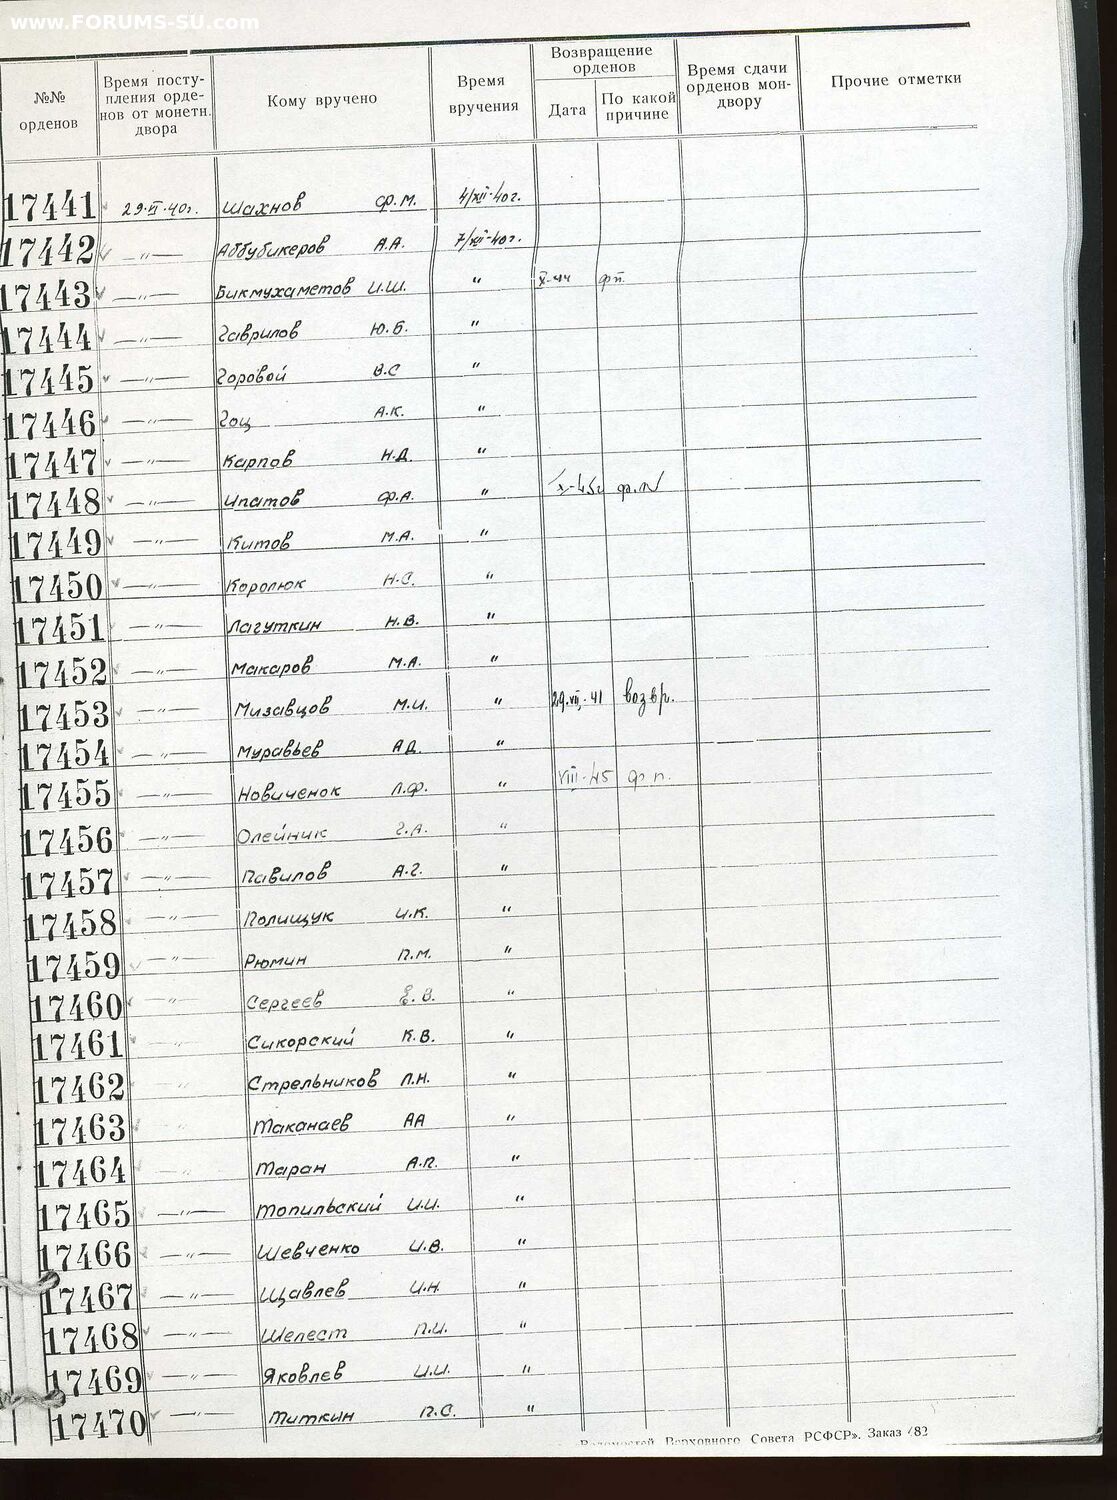 www.FORUMS-SU.com
№№ орденов
Время поступления орденов от монетн. двора
Кому вручено
Время вручения
Возвращение орденов
Дата
По какой причине
Время сдачи орденов мондвору
Прочие отметки
17441 29.VI.40г. Шахнов Ф.М. 4/XII-40г.
17442 —"— Аббубикеров А.А. 7/XII-40г.
17443 —"— Бикмухаметов И.Ш. " X-44 ф.п.
17444 —"— Гаврилов Ю.Б. "
17445 —"— Горовой В.С "
17446 —"— Гоц А.К. "
17447 —"— Карпов Н.Д. "
17448 —"— Ипатов Ф.А. " X-45г ф.п
17449 —"— Китов М.А. "
17450 —"— Королюк Н.С. "
17451 —"— Лагуткин Н.В. "
17452 —"— Макаров М.А. "
17453 —"— Мизавцов М.И. " 29.VII.-41 возвр.
17454 —"— Муравьев А.Д. "
17455 —"— Новиченок Л.Ф. " VIII-45 ф.п.
17456 —"— Олейник Г.А. "
17457 —"— Павилов А.Г. "
17458 —"— Полищук И.К. "
17459 —"— Рюмин П.М. "
17460 —"— Сергеев Е.В. "
17461 " Сикорский К.В. "
17462 " Стрельников Л.Н. "
17463 " Таканаев АА "
17464 " Таран А.П. "
17465 —"— Топильский И.И. "
17466 —"— Шевченко И.В. "
17467 —"— Щавлев И.Н. "
17468 —"— Шелест П.И. "
17469 —"— Яковлев И.И. "
17470 —"— Титкин П.С. "
Ведомостей Верховного Совета РСФСР». Заказ